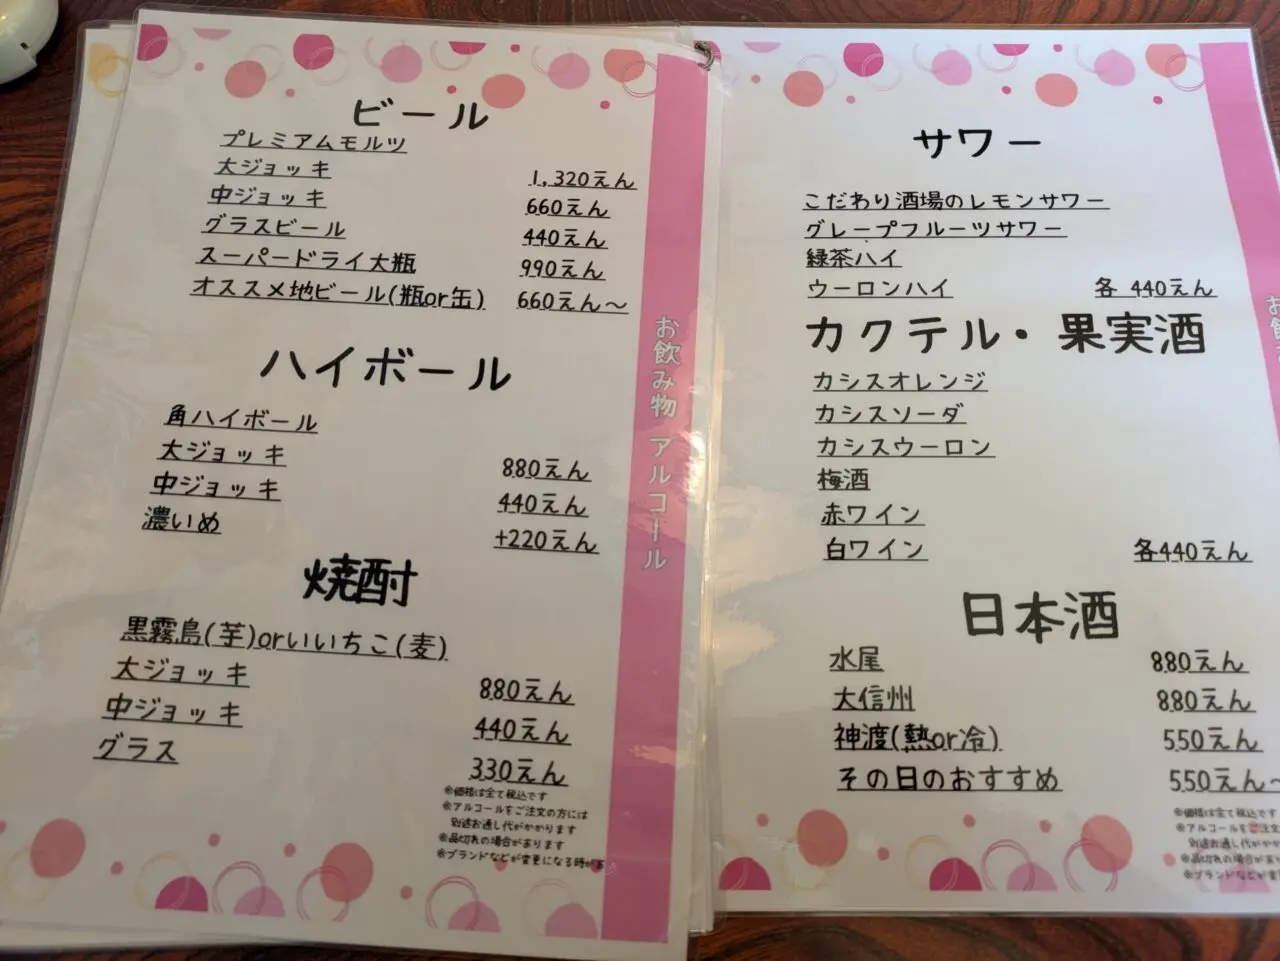 ビール
プレミアムモルツ
大ジョッキ 1,320えん
中ジョッキ 660えん
グラスビール 440えん
スーパードライ大瓶 990えん
オススメ地ビール(瓶or缶) 660えん～
ハイボール
角ハイボール
大ジョッキ 880えん
中ジョッキ 440えん
濃いめ +220えん
焼酎
黒霧島(芋)orいいちこ(麦)
大ジョッキ 880えん
中ジョッキ 440えん
グラス 330えん
※価格は全て税込です
※アルコールをご注文の方には
別途お通し代がかかります
※品切れの場合があります
※ブランドなどが変更になる時があ
お飲み物 アルコール
サワー
こだわり酒場のレモンサワー
グレープフルーツサワー
緑茶ハイ
ウーロンハイ 各 440えん
カクテル・果実酒
カシスオレンジ
カシスソーダ
カシスウーロン
梅酒
赤ワイン
白ワイン 各440えん
日本酒
水尾 880えん
大信州 880えん
神渡(熱or冷) 550えん
その日のおすすめ 550えん～
※価格は全て税込です
※アルコールをご注文
別途お通し代がか
※品切れの場合があ
※ブランドなどが変更
お飲